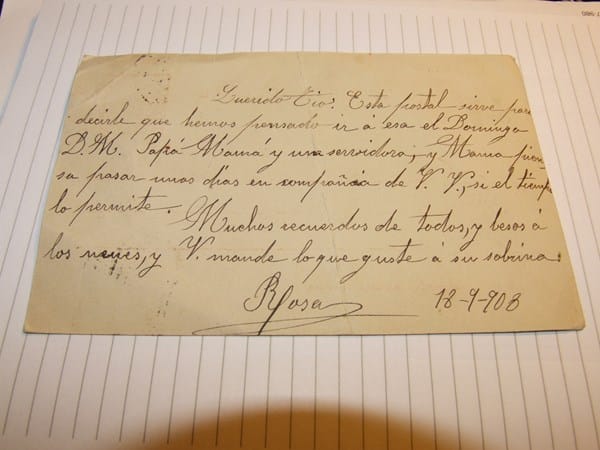 Querido Tio: Esta postal sirve para
decirle que hemos pensado ir á esa el Domingo
D. M. Papá Mamá y una servidora, y Mama pien
sa pasar unos dias en compañia de V. V, si el tiempo
lo permite. Muchos recuerdos de todos, y besos á
los nenes, y V. mande lo que guste á su sobrina
Rosa 18-9-903